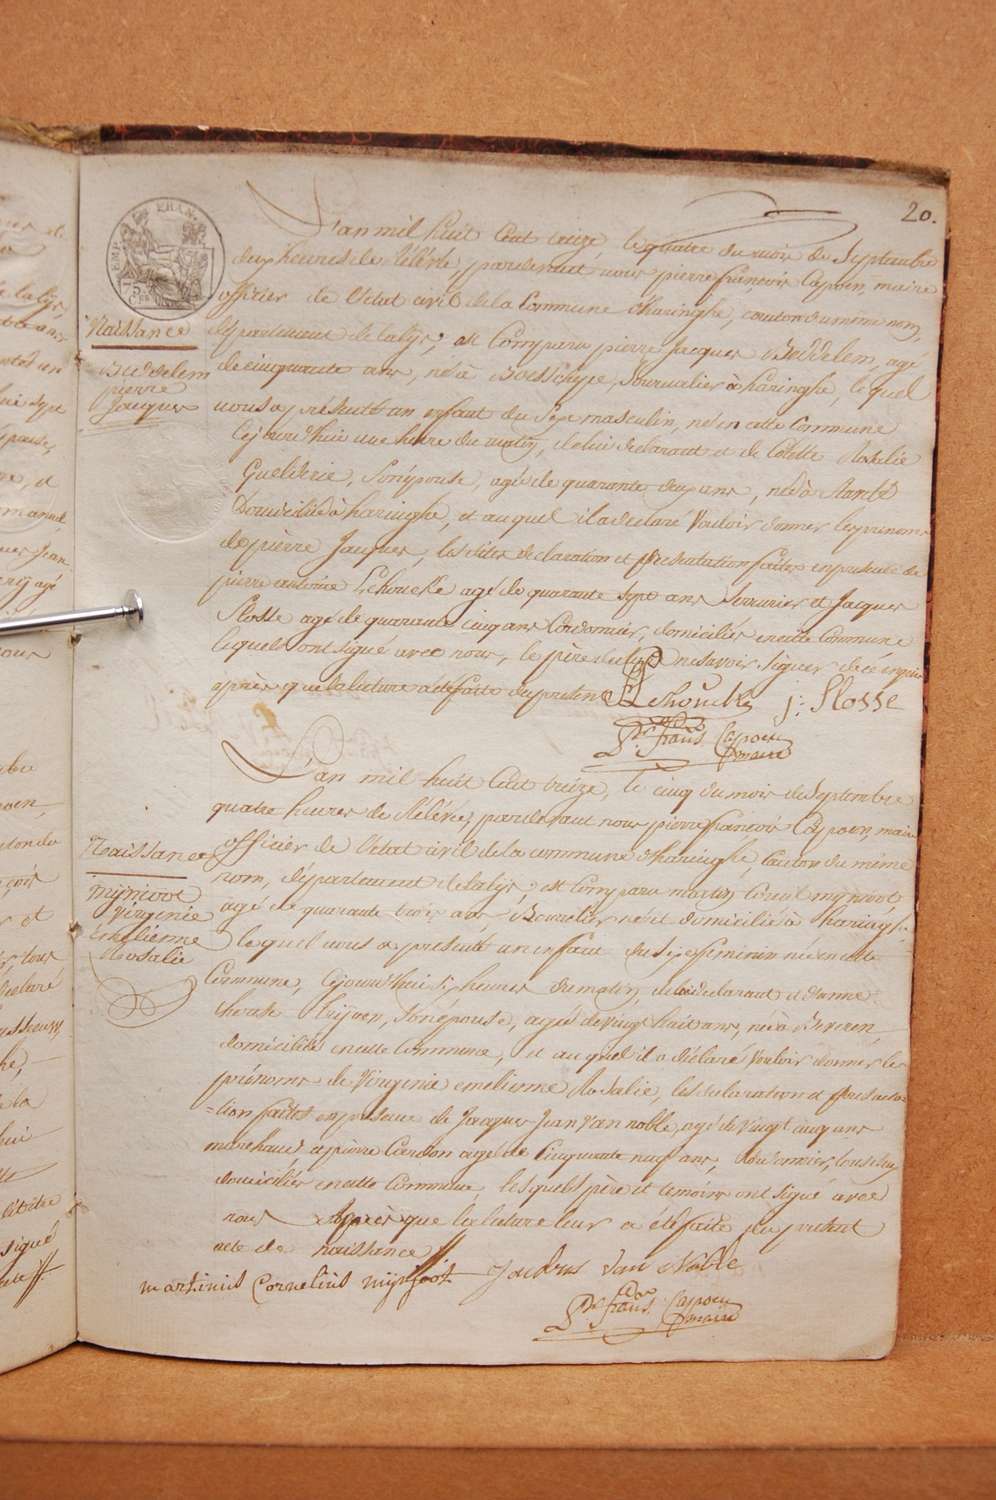 20.
TIMB. FRAN.
L'an mil huit Cent treize, le quatre du mois de Septembre
deux heures de rélévé, pardevant nous pierre francois Capoen, maire
officier de l'état civil de la Commune d'haringhe, canton du même nom,
département de la lys, est Comparu pierre Jacques Beddelem, agé
de cinquante ans, né à Boesschepe, Journalier à haringhe, le quel
nous a présenté un enfant du sexe masculin, né en cette Commune
Cejourd'hui une heure du matin, de lui déclarant et de Colette Rosalie
son épouse, agée de quarante deux ans, née à
Domiciliée à haringhe, et auquel il a déclaré Vouloir donner les prénoms
de pierre Jacques, les dites déclaration et présentation faites en présence de
pierre antoine Lehoucke agé de quarante sept ans Serrurier et Jacques
Slosse agé de quarante cinq ans Cordonnier, domiciliés en cette Commune
lequels ont signé avec nous, le père déclaré ne savoir signer de ce enquis
après que la lecture a été faitte du présent
Naissance
Beddelem
pierre
Jacques
Lehoucke j: Slosse
Pre frans Capoen
maire
L'an mil huit Cent treize, le cinq du mois de Septembre
quatre heures de rélévé, pardevant nous pierre francois Capoen, maire
officier de l'état civil de la commune d'haringhe, Canton du même
nom, département de la lys, est Comparu martin Corneil mynoot
agé de quarante trois ans, né et domicilié à haringhe
lequel nous a présenté un enfant du sexe féminin né en cette
Commune, Cejourd'hui six heures du matin, de lui déclarant et d'anne
son épouse, agée de vingt huit ans, née à Beveren,
domiciliée en cette Commune, et auquel il a déclaré Vouloir donner les
prénoms de Virginie emelienne Rosalie, les déclaration et présenta
=tion faittes en présence de Jacques Jean Van noble, agé de vingt cinq ans
marchand et pierre Cardon agé de Cinquante neuf ans, Cordonnier, tous deux
domiciliés en cette Commune, lesquels père et temoins ont signé avec
nous Après que la lecture leur a été faite du présent
acte de naissance
Naissance
mijnoot
Virginie
Emélienne
Rosalie
martinus Cornelius mijnoot Jacobus Van Noble
Pre frans Capoen
maire